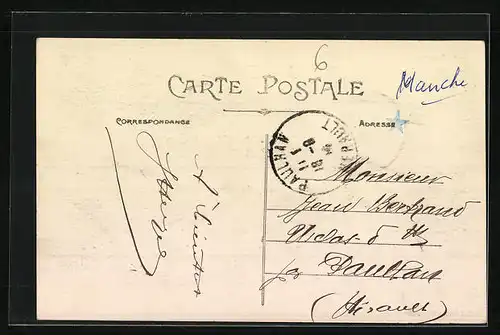 6
CARTE POSTALE
Manche
CORRESPONDANCE
ADRESSE
PAULHAN
HÉRAULT
À bientôt
Monsieur
Jean Bertrand
par Paulhan
(Hérault)